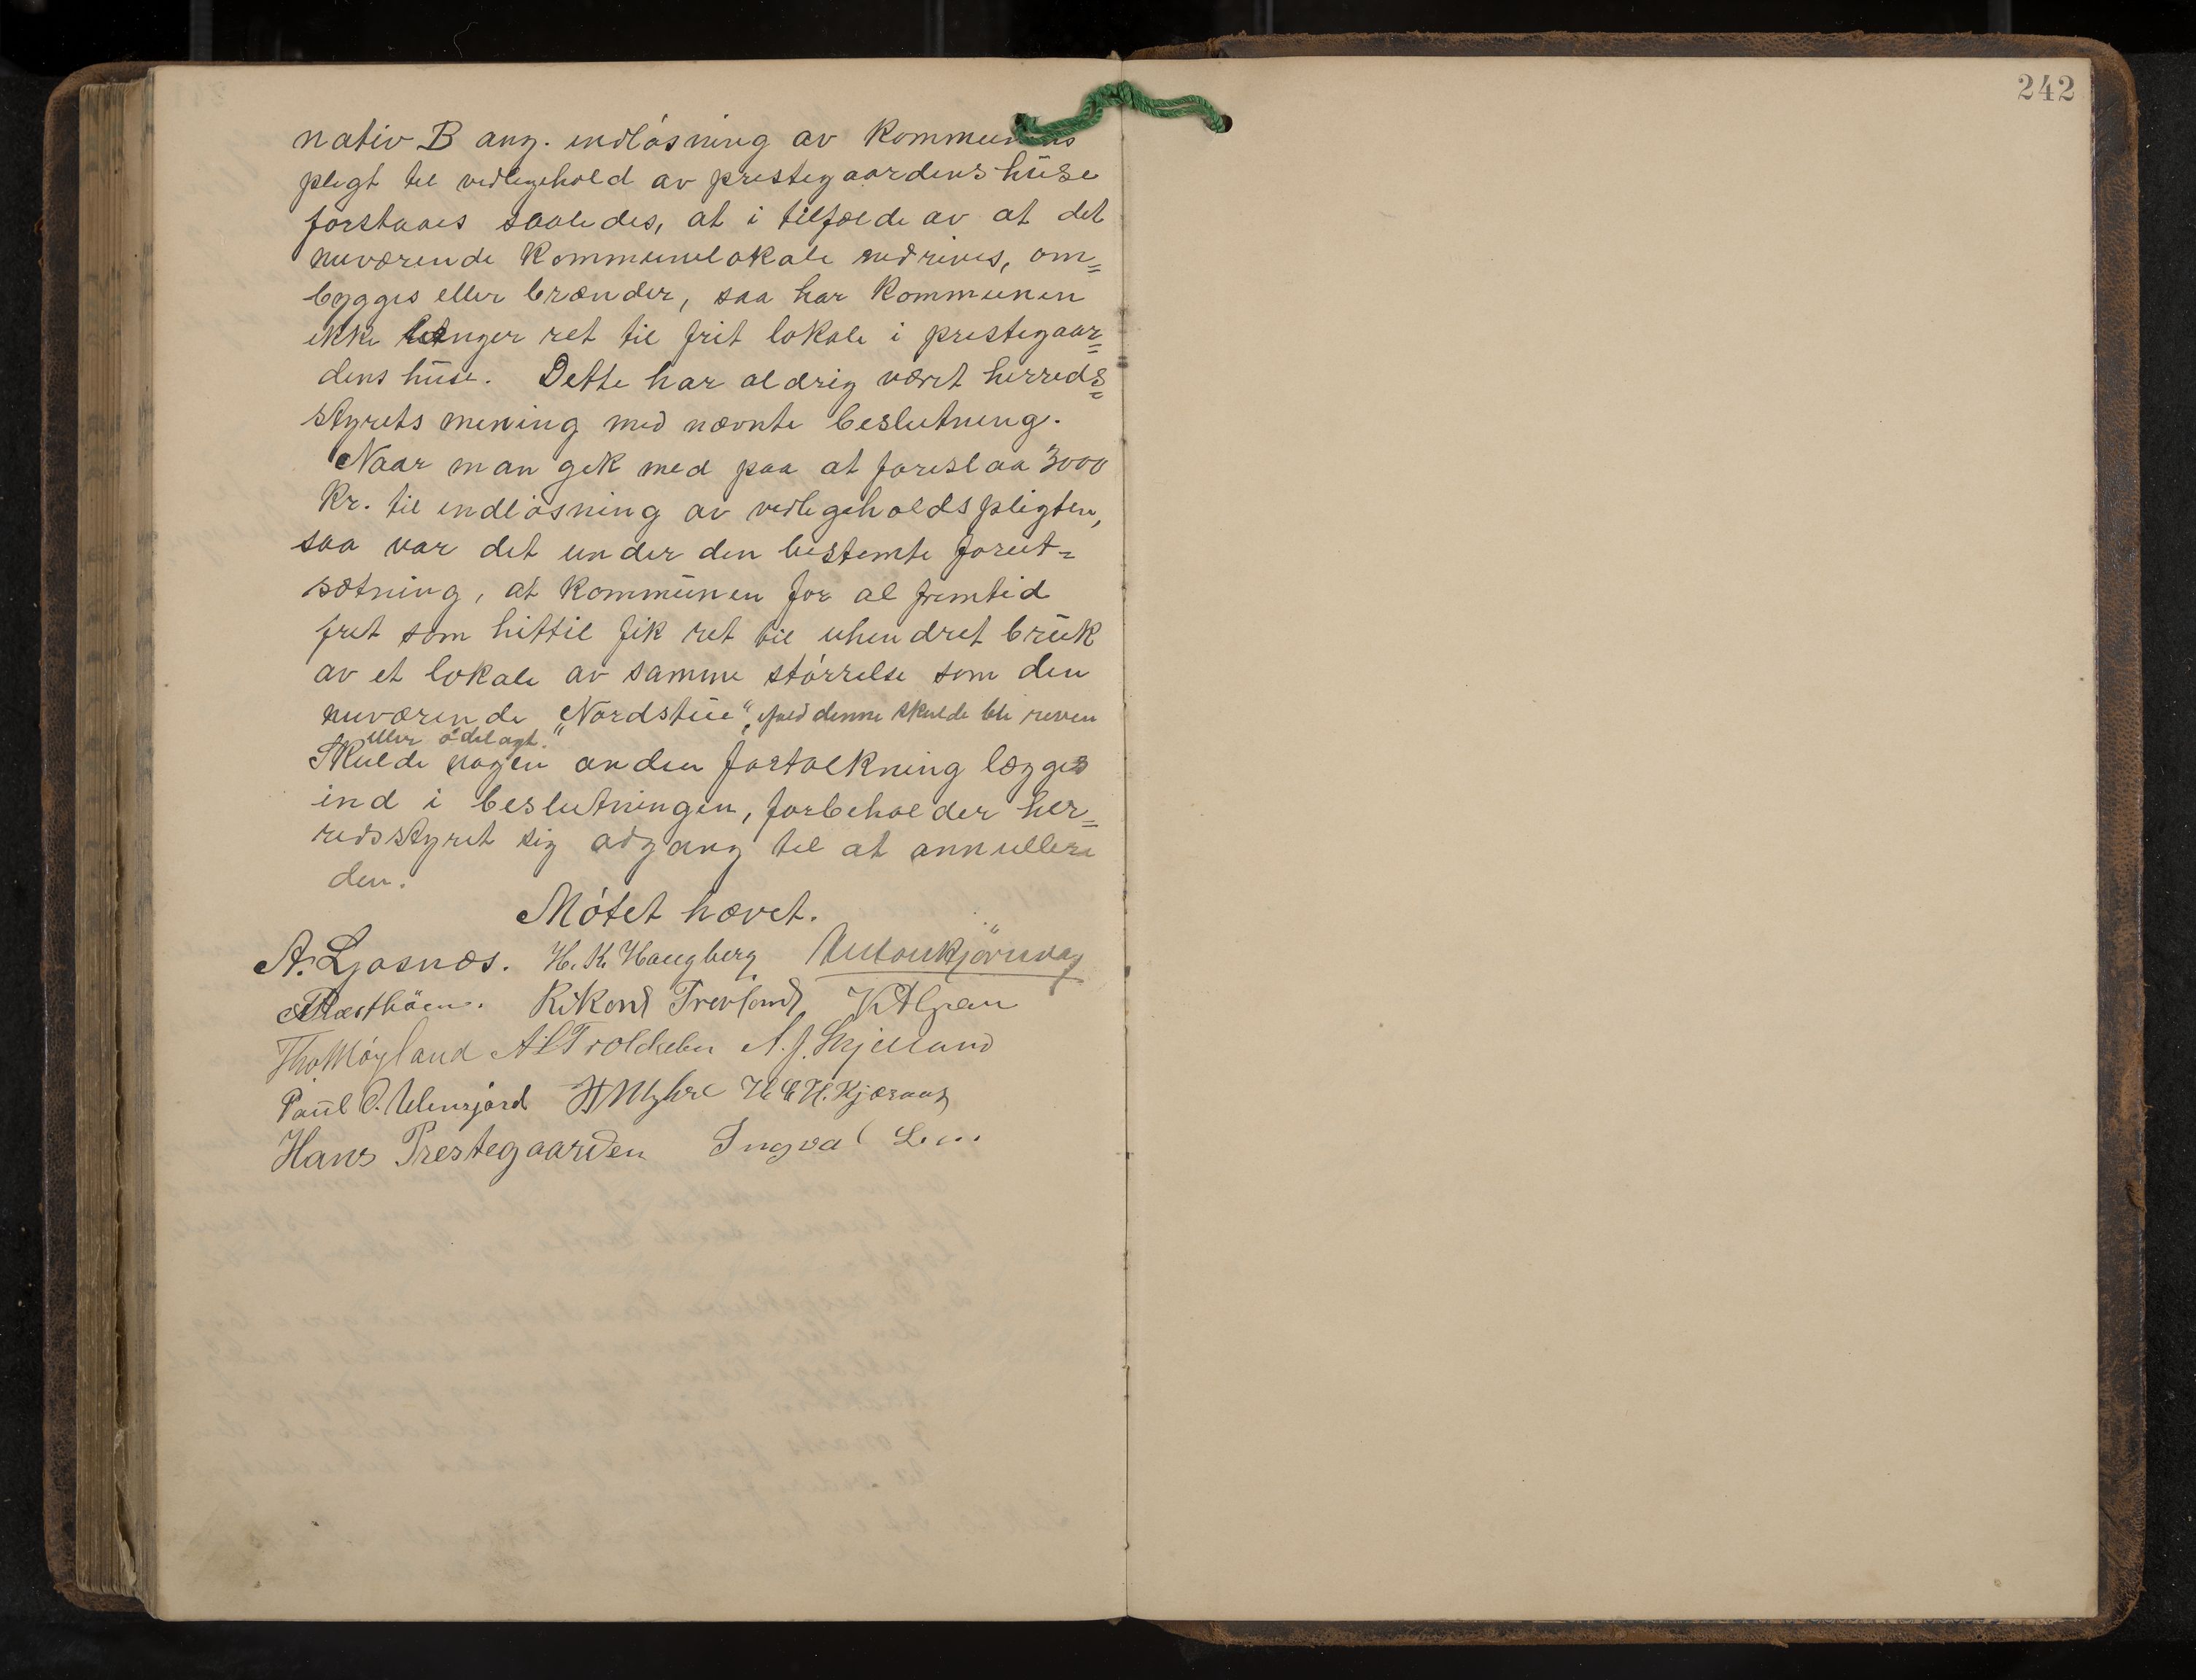 242
nativ B ang. indløsning av kommunens
pligt til vedligehold av prestegaardens huse
forstaaes saaledes, at i tilfælde av at det
nuværende kommunelokale nedrives, om=
bygges eller brænder, saa har kommunen
ikke længer ret til frit lokale i prestegaar=
dens huse. Dette har aldrig været herreds=
styrets mening med nævnte beslutning.
Naar man gik med paa at foreslaa 3000
kr. til indløsning av vedligeholdspligten,
saa var det under den bestemte forut=
sætning, at kommunen for al fremtid
frit som hittil fik ret til uhindret bruk
av et lokale av samme størrelse som den
nuværende „Nordstue“, ifald denne skulde bli reven
eller ødelagt.“
Skulde nogen anden fortolkning lægges
ind i beslutningen, forbeholder her=
redsstyret sig adgang til at annullere
den.
Møtet hævet.
A. Ljosnæs. H. K. Haugberg Anton
Rikard Trevland
Tho Møyland A L Troldsden A. J. Skjelland
Paul O. H Myhre H. Kjæraas
Hans Prestegaarden Ingval